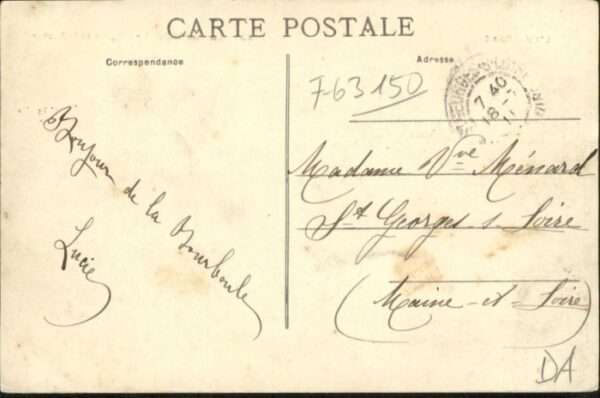 CARTE POSTALE
Correspondance
Adresse
F-63150
7 40
18
Bonjour de la Bourboule
Lucie
Madame Vve Ménard
St Georges s Loire
(Maine-et-Loire)
DA